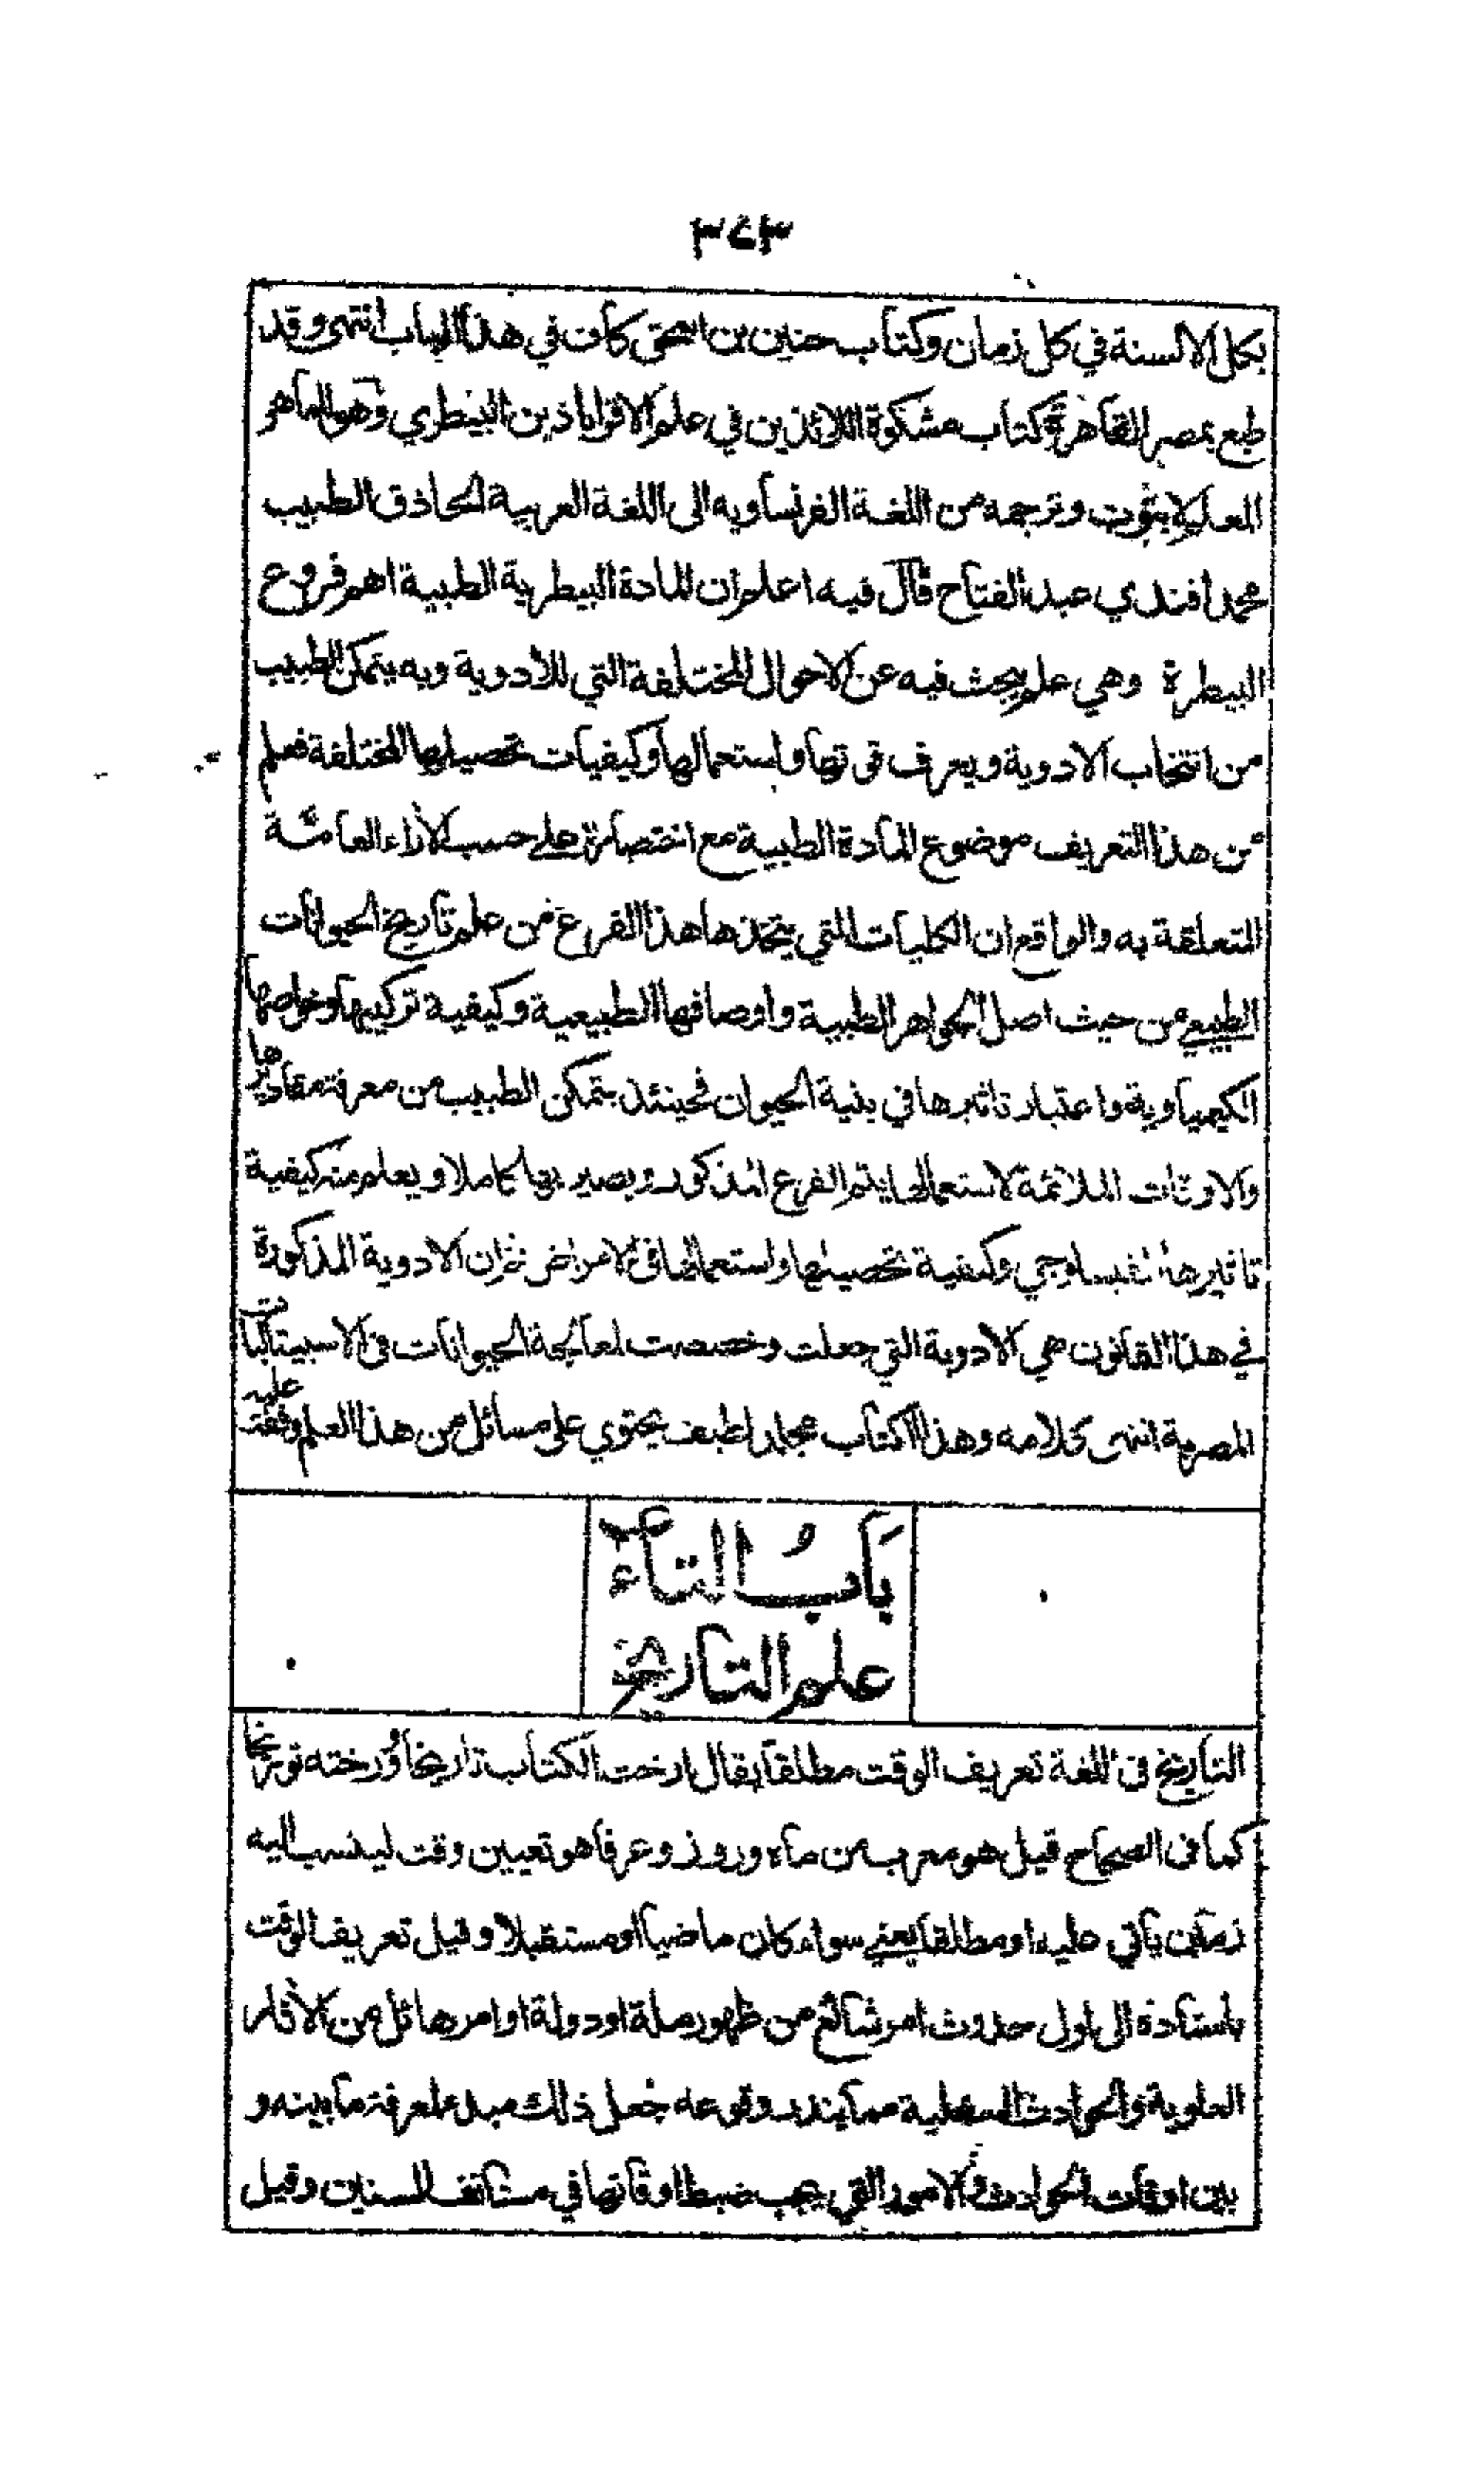 ٣٤٣
بكل الالسنة في كل زمان وكتاب حنين بن اسحق كان في هذا الباب انتهى وقد
طبع بمصر القاهرة كتاب مشكوة اللائذين في علم الاقراباذين البيطري وهو للماهر
المعلم لابتوت وترجمه من اللغة الفرنساويه الى اللغة العربية الحاذق الطبيب
محمد افندي عبد الفتاح قال فيه اعلم ان المادة البيطرية الطبية اهم فروع
البيطرة وهي علم يبحث فيه عن الاحوال المختلفة التي للأدوية وبه يتمكن الطبيب
من انتخاب الادوية ويعرف قوتها واستعمالها وكيفيات تحصيلها المختلفة فعلم
من هذا التعريف موضوع المادة الطبية مع اختصاره على حسب الأراء العامة
المتعلقة به والواقع ان الكليات التي يتخذها هذا الفرع من علم تاريخ الحيوانات
الطبيعي من حيث اصل الجواهر الطبية واوصافها الطبيعية وكيفية تركيبها وخواصها
الكيمياوية واعتبار تاثيرها في بنية الحيوان فحينئذ يتمكن الطبيب من معرفة مقاديرها
والاوقات الملائمة لاستعمالها يتم الفرع المذكور ويصير بها كاملا ويعلم منه كيفية
تاثيرها الفسلوجي وكيفية تحصيلها واستعمالها في الامراض ثم ان الادوية المذكورة
في هذا القانون هي الادوية التي جعلت وخصصت لمعالجة الحيوانات في الاسبيتاليات
المصرية انتهى كلامه وهذا الكتاب مجلد لطيف يحتوي على مسائل من هذا العلم وقفت عليه
باب التاء
علم التاريخ
التاريخ في اللغة تعريف الوقت مطلقا يقال ارخت الكتاب تاريخا وورخته توريخا
كما في الصحاح قيل هو معرب من ماه وروز وعرفا هو تعيين وقت لينسب اليه
زمان يأتي عليه او مطلقا يعني سواء كان ماضيا او مستقبلا وقيل تعريف الوقت
باسناده الى اول حدوث امر شائع من ظهور ملة او دولة او امر هائل من الأثار
العلوية والحوادث السفلية مما يندر وقوعه جعل ذلك مبدء لمعرفة ما بينه و
بين اوقات الحوادث والامور التي يجب ضبط اوقاتها في مستأنف السنين وقيل